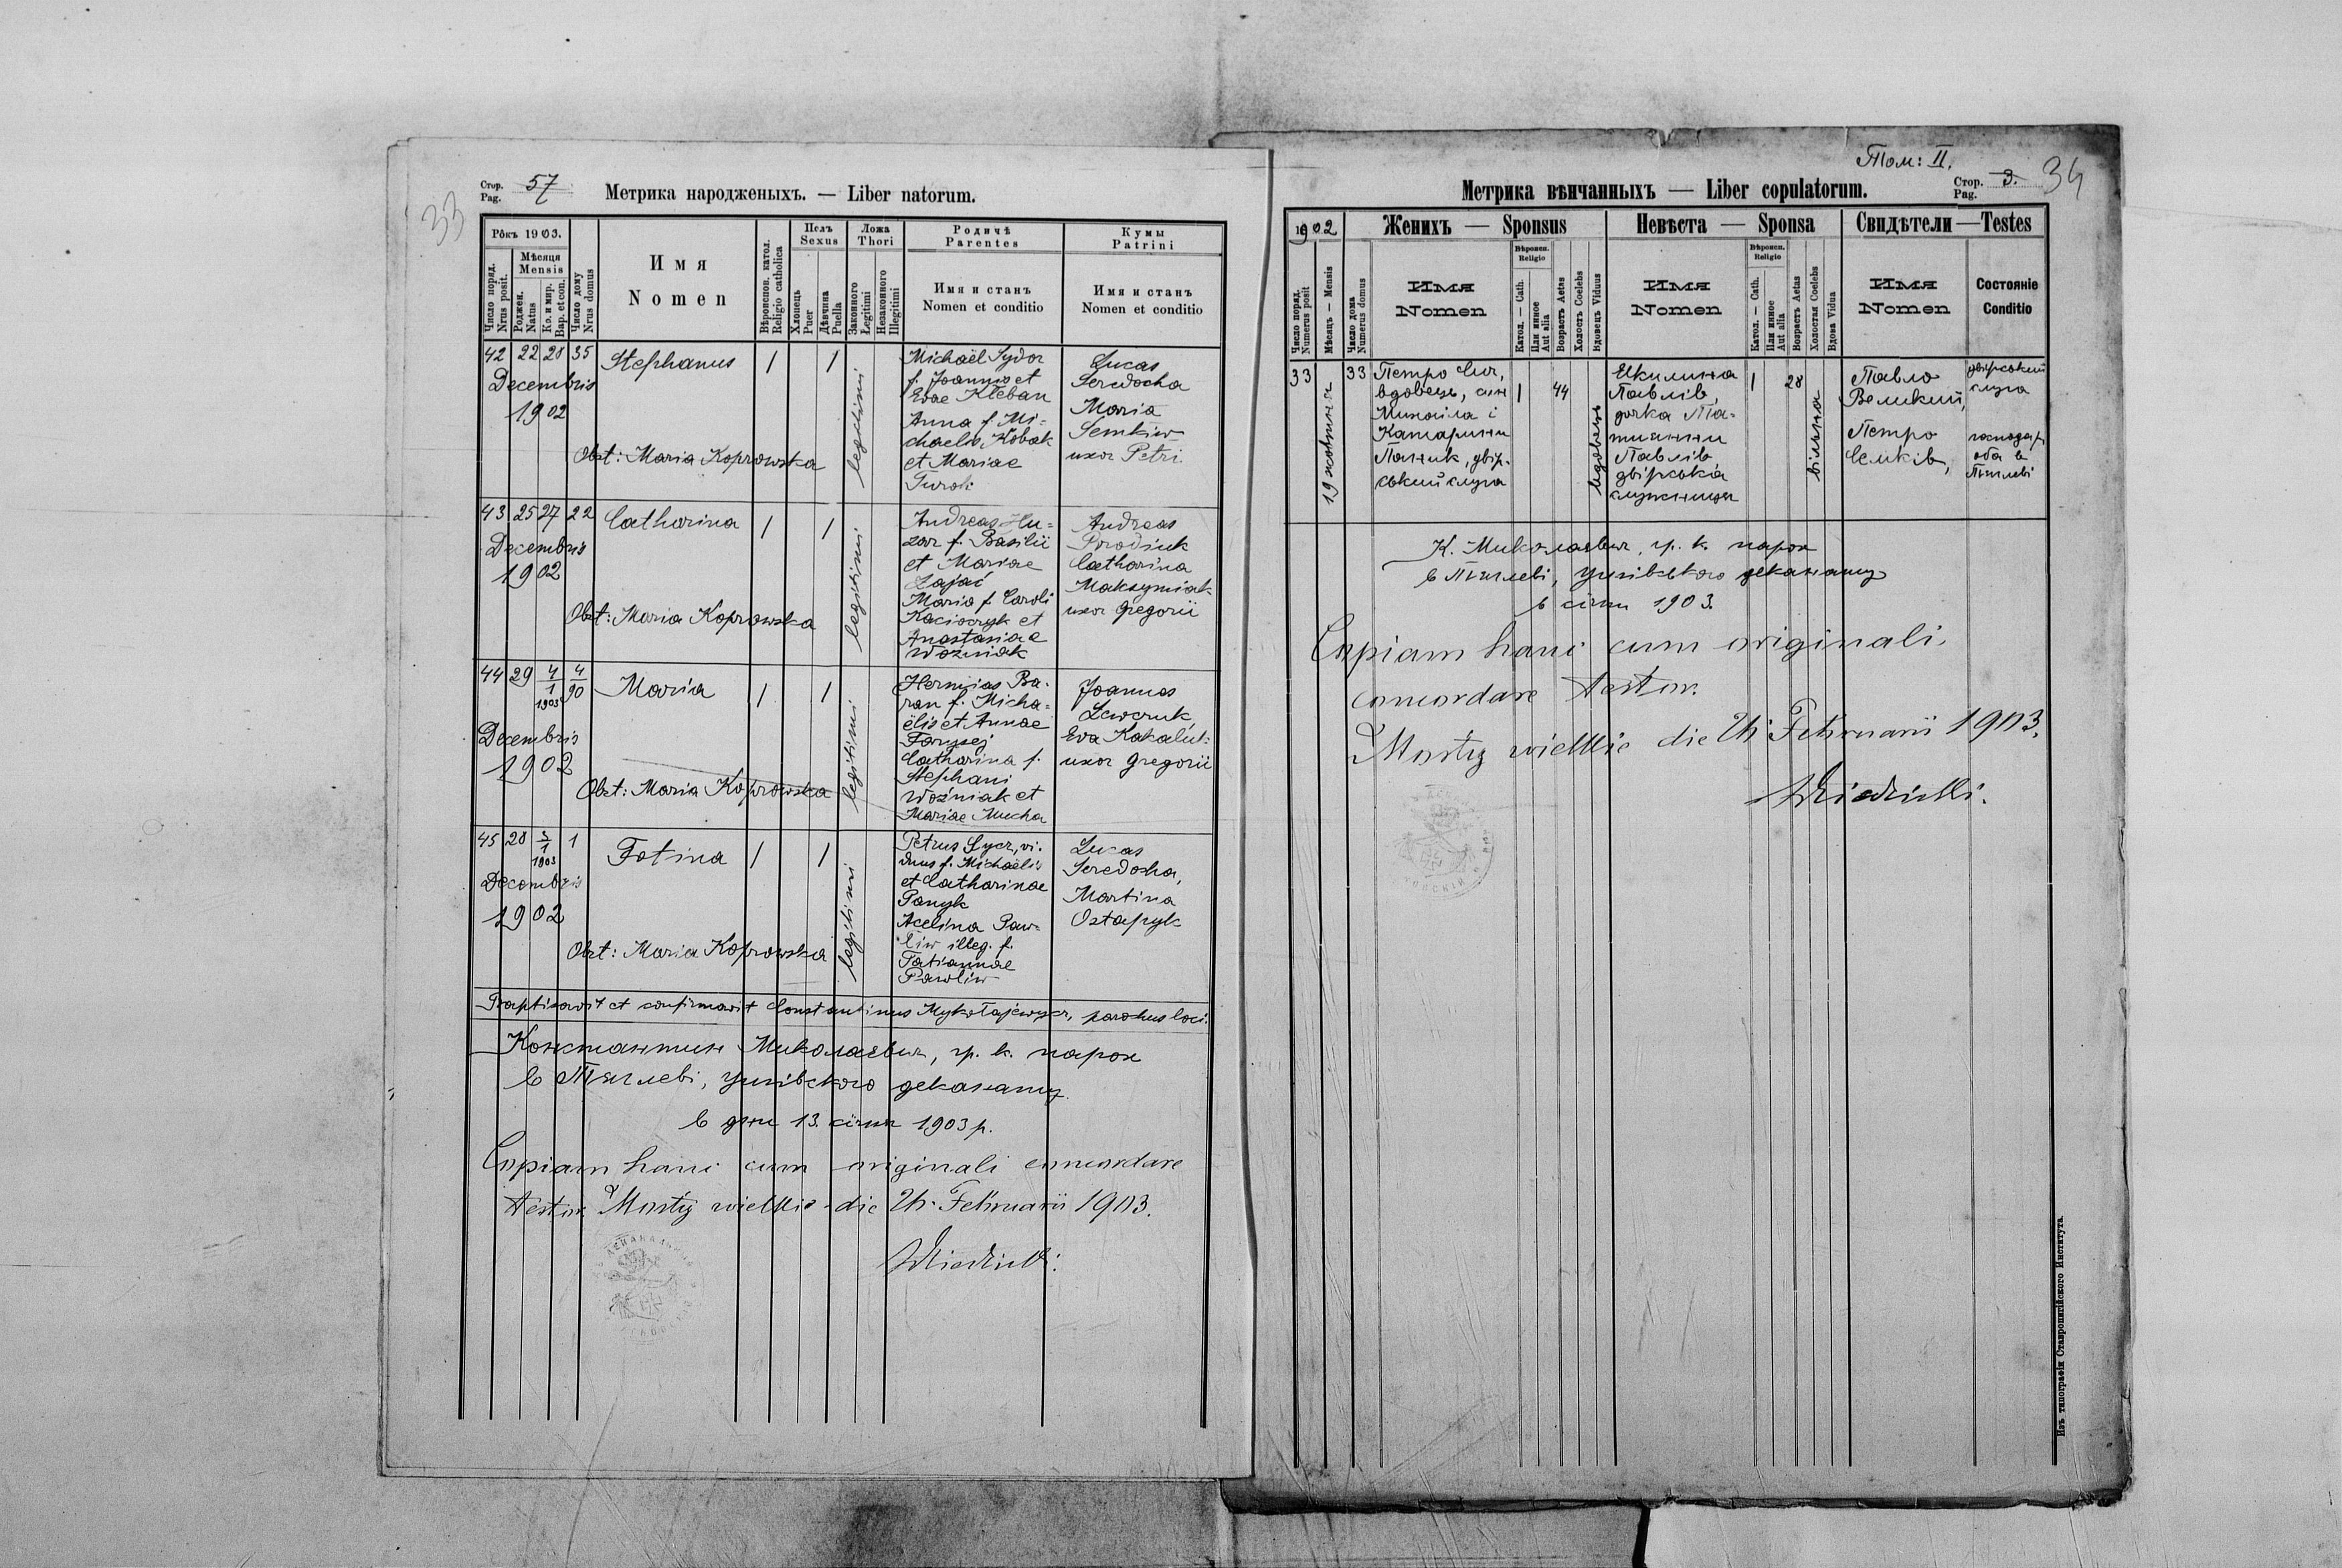 33
Стор. 57
Pag.
Метрика народженыхъ. — Liber natorum.
Рôкъ 1903.
Число поряд.
Nrus posit.
Мѣсяця
Mensis
Роджен.
Natus
Кр. и мир.
Bap. et con.
Число дому
Nrus domus
Имя
Nomen
Вѣроиспов. катол.
Religio catholica
Полъ
Sexus
Хлопець
Puer
Дѣвчина
Puella
Ложа
Thori
Законного
Legitimi
Незаконного
Illegitimi
Родичѣ
Parentes
Имя и станъ
Nomen et conditio
Кумы
Patrini
Имя и станъ
Nomen et conditio
42 22 28 35
Decembris
1902
Stephanus
1 1
legitimi
Michaël Sydor
f. Joannis et
Evae Kleban
Anna f. Mi-
chaelis Kobak
et Mariae
Lucas
Seredocha
Maria
Semkiw
uxor Petri
Obst: Maria Koprowska
43 25 27 22
Decembris
1902
Catharina
1 1
legitimi
Andreas Hu-
zar f. Basilii
et Mariae
Zając
Maria f. Caroli
et
Anastasiae
Woźniak
Andreas
Brodiuk
Catharina
Maksymiak
uxor Gregorii
Obst: Maria Koprowska
44 29 4/1 1903 4/90
Decembris
1902
Maria
1 1
legitimi
Hermias Ba-
ran f. Micha-
ëlis et Annae
Catharina f.
Stephani
Woźniak et
Mariae Mucha
Joannes
Lewczuk,
Eva
uxor Gregorii
Obst: Maria Koprowska
45 28 3/1 1903 1
Decembris
1902
Fotina
1 1
legitimi
Petrus Sycz, vi-
duus f. Michaëlis
et Catharinae
Panyk
Acelina Paw-
liw illeg. f.
Tatiannae
Pawliw
Lucas
Seredocha,
Martina
Ostapyk
Obst: Maria Koprowska
Baptisavit et confirmavit Constantinus Mykołajewycz, parochus loci.
Константин Миколаєвич, гр. к. парох
в Тяглеві, угнівского деканату
в дни 13. січня 1903 р.
Copiam hanc cum originali concordare
testor. Mosty wielkie die Februarii 1903.
Том: II.
Метрика вѣнчанныхъ — Liber copulatorum.
Стор. 3.
Pag.
34
1902
Число поряд.
Numerus posit
Мѣсяцъ — Mensis
Число дома
Numerus domus
Женихъ — Sponsus
Имя
Nomen
Вѣроисп.
Religio
Катол. — Cath.
Или иное
Aut alia
Возрастъ Aetas
Холостъ Coelebs
Вдовецъ Viduus
Невѣста — Sponsa
Имя
Nomen
Вѣроисп.
Religio
Катол. — Cath.
Или иное
Aut alia
Возрастъ Aetas
Холостая Coelebs
Вдова Vidua
Свидѣтели — Testes
Имя
Nomen
Состояніе
Conditio
33
19 жовтня
33
Петро Сич,
вдовець, син
Михаіла і
Катарини
Паник, двір-
ський слуга
1 44
вдовець
Екилина
Павлів,
дочка Та-
тиянни
Павлів
двірська
служниця
1 28
вільна
Павло
Великий,
Петро
Семків,
двірський
слуга
господар,
оба в
Тяглеві
К. Миколаєвич, гр. к. парох
в Тяглеві, угнівського деканату
в січни 1903.
Copiam hanc cum originali
concordare testor.
Mosty wielkie die Februarii 1903.
Изъ типографіи Ставропигійского Института.